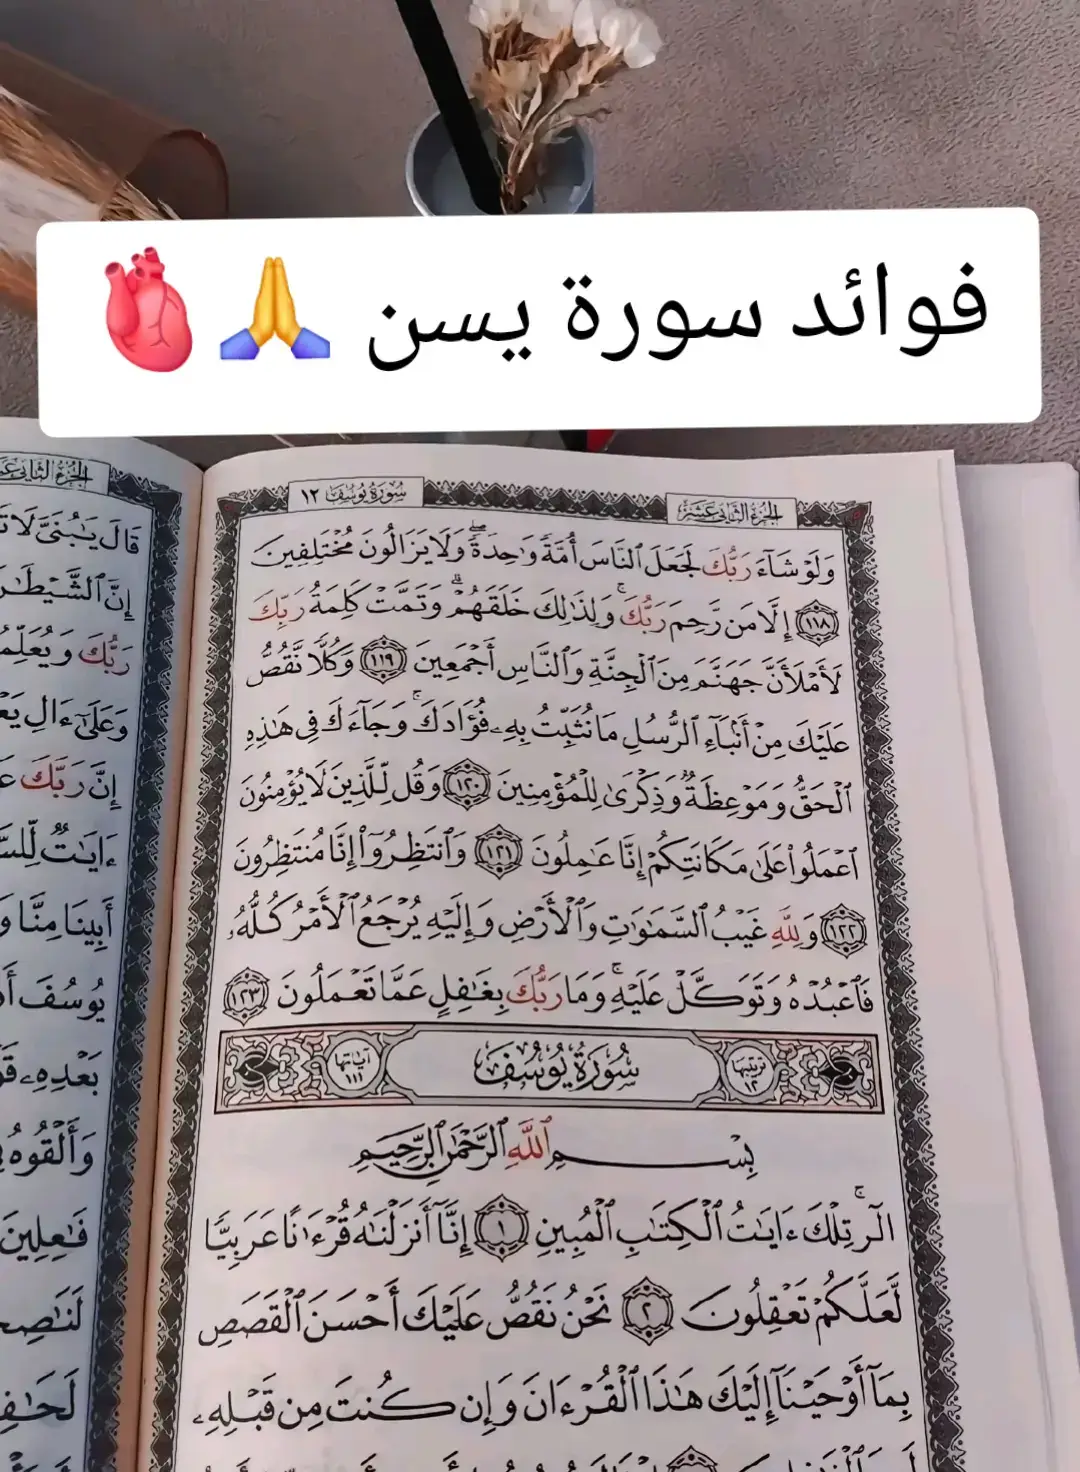 فوائد سورة يسن 🙏🫀
سورة يوسف ١٢
الجزء الثاني عشر
وَلَوْ شَآءَ رَبُّكَ لَجَعَلَ ٱلنَّاسَ أُمَّةً وَٰحِدَةً ۖ وَلَا يَزَالُونَ مُخْتَلِفِينَ
١١٨ إِلَّا مَن رَّحِمَ رَبُّكَ ۚ وَلِذَٰلِكَ خَلَقَهُمْ ۗ وَتَمَّتْ كَلِمَةُ رَبِّكَ
لَأَمْلَأَنَّ جَهَنَّمَ مِنَ ٱلْجِنَّةِ وَٱلنَّاسِ أَجْمَعِينَ ١١٩ وَكُلًّا نَّقُصُّ
عَلَيْكَ مِنْ أَنۢبَآءِ ٱلرُّسُلِ مَا نُثَبِّتُ بِهِۦ فُؤَادَكَ ۚ وَجَآءَكَ فِى هَٰذِهِ
ٱلْحَقُّ وَمَوْعِظَةٌ وَذِكْرَىٰ لِلْمُؤْمِنِينَ ١٢٠ وَقُل لِّلَّذِينَ لَا يُؤْمِنُونَ
ٱعْمَلُوا۟ عَلَىٰ مَكَانَتِكُمْ إِنَّا عَٰمِلُونَ ١٢١ وَٱنتَظِرُوٓا۟ إِنَّا مُنتَظِرُونَ
١٢٢ وَلِلَّهِ غَيْبُ ٱلسَّمَٰوَٰتِ وَٱلْأَرْضِ وَإِلَيْهِ يُرْجَعُ ٱلْأَمْرُ كُلُّهُۥ
فَٱعْبُدْهُ وَتَوَكَّلْ عَلَيْهِ ۚ وَمَا رَبُّكَ بِغَٰفِلٍ عَمَّا تَعْمَلُونَ ١٢٣
ترتيبها ١٢ سُورَةُ يُوسُفَ آياتها ١١١
بِسْمِ ٱللَّهِ ٱلرَّحْمَٰنِ ٱلرَّحِيمِ
الٓر ۚ تِلْكَ ءَايَٰتُ ٱلْكِتَٰبِ ٱلْمُبِينِ ١ إِنَّآ أَنزَلْنَٰهُ قُرْءَٰنًا عَرَبِيًّا
لَّعَلَّكُمْ تَعْقِلُونَ ٢ نَحْنُ نَقُصُّ عَلَيْكَ أَحْسَنَ ٱلْقَصَصِ
بِمَآ أَوْحَيْنَآ إِلَيْكَ هَٰذَا ٱلْقُرْءَانَ وَإِن كُنتَ مِن قَبْلِهِۦ
قَالَ يَٰبُنَىَّ لَا
إِنَّ ٱلشَّيْطَٰنَ
رَبُّكَ وَيُعَلِّمُ
وَعَلَىٰٓ ءَالِ
إِنَّ رَبَّكَ
ءَايَٰتٌ
أَبِينَا مِنَّا
يُوسُفَ
بَعْدِهِۦ
وَأَلْقُوهُ
فَٰعِلِينَ